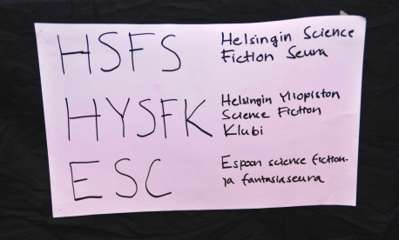 HSFS
Helsingin Science
Fiction Seura
HYSFK
Helsingin Yliopiston
Science Fiction
Klubi
ESC
Espoon science fiction-
ja fantasiaseura